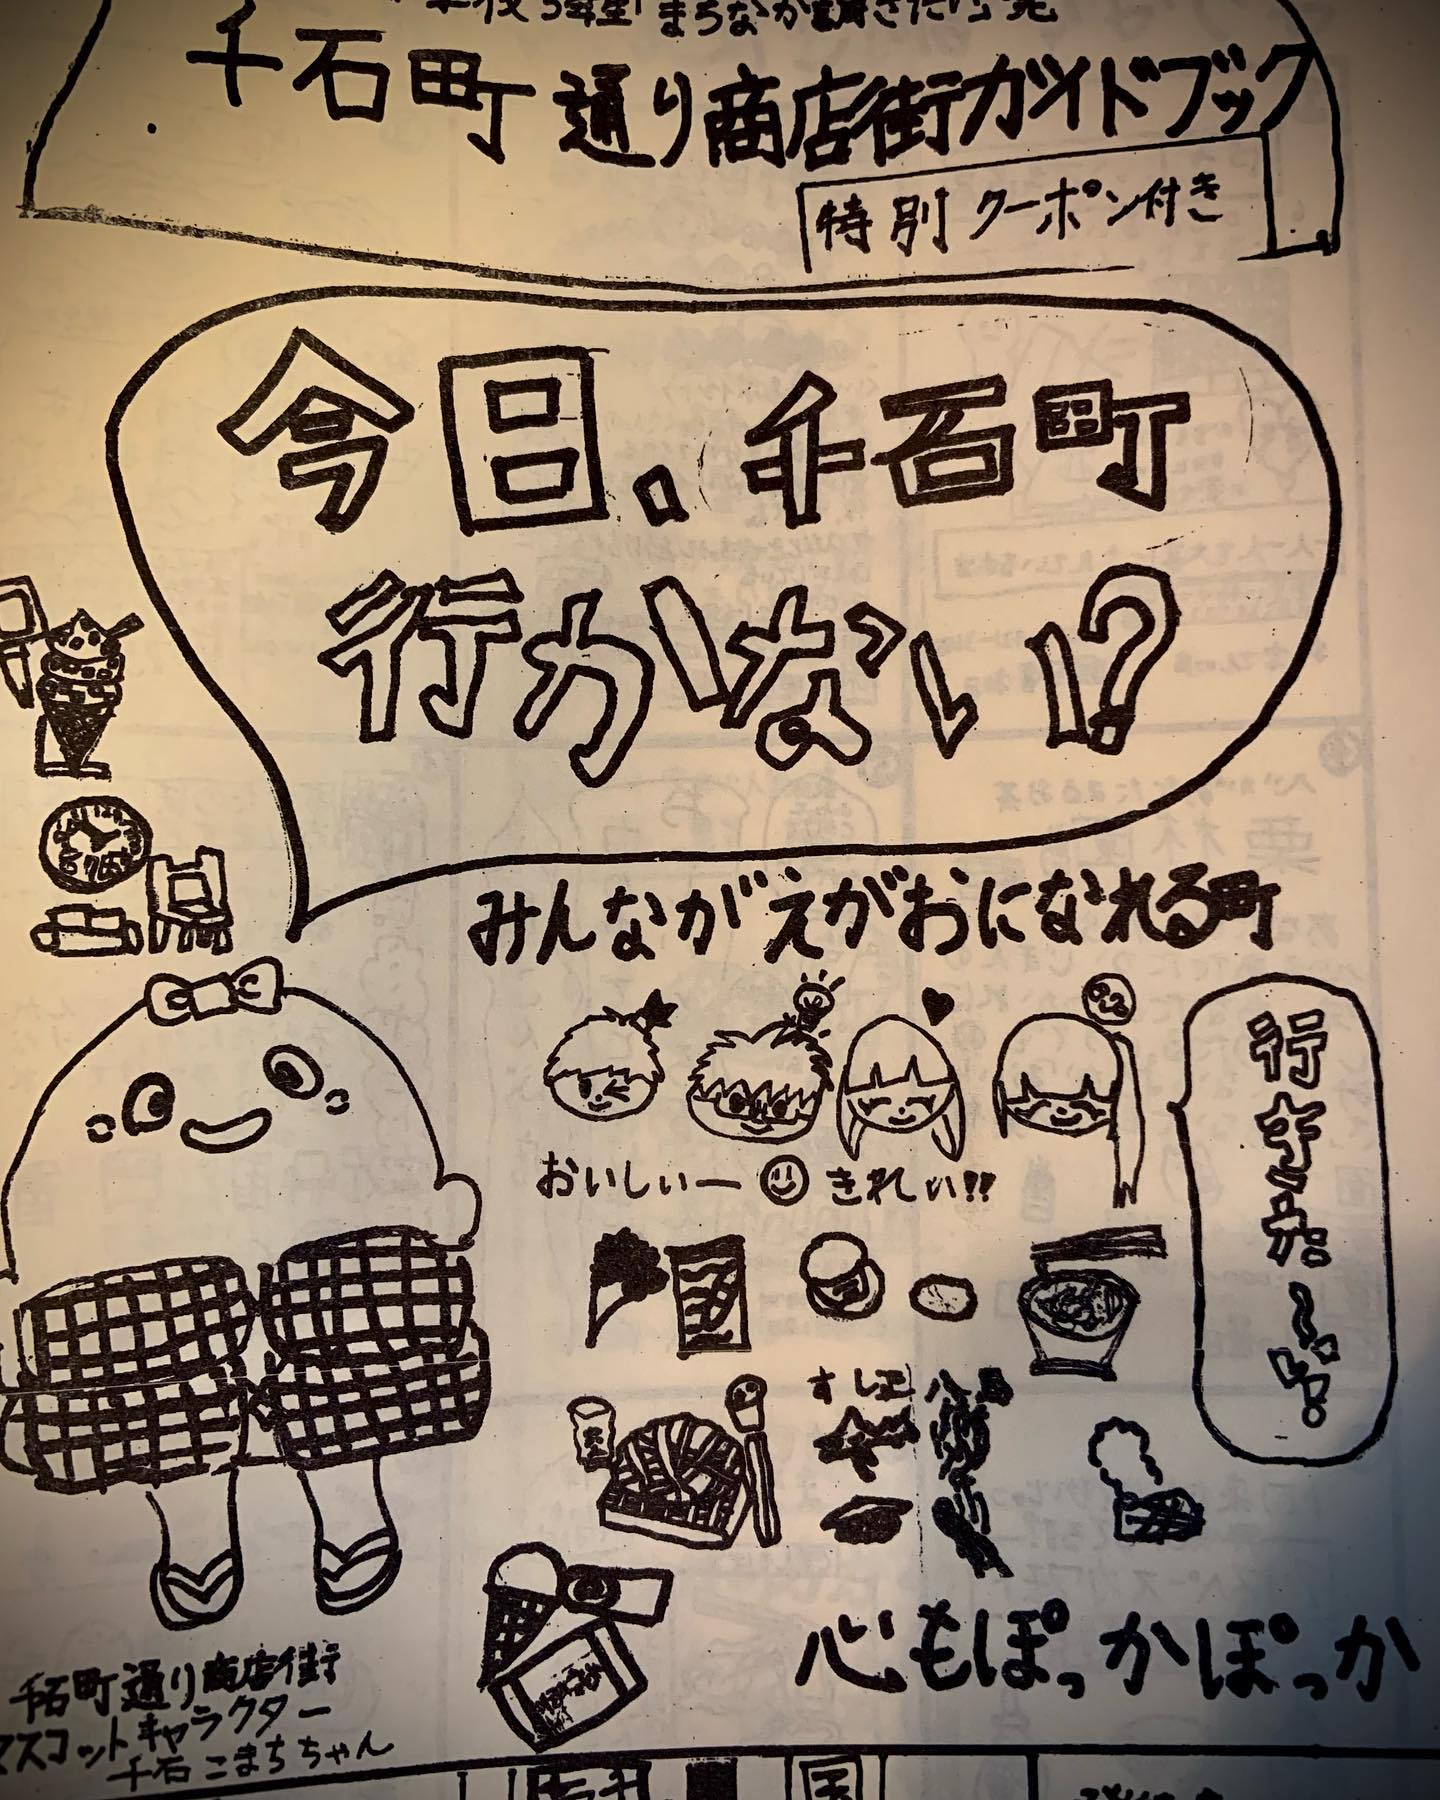 まちなか
千石町通り商店街ガイドブック
特別クーポン付き
今日、千石町
行かない!?
みんながえがおになれる町
行きた〜い!!
おいしぃー きれしぃ!!
心もぽっかぽっか
千石町通り商店街
マスコットキャラクター
千石こまちちゃん